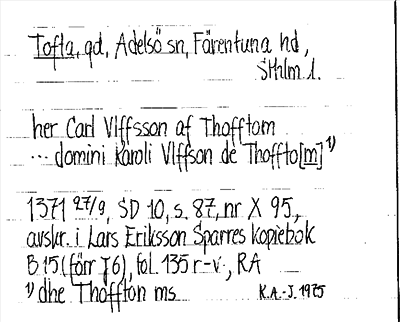 Tofta, gd, Adelsö sn, Färentuna hd,
Sthlm l.
her Carl Vlffsson af Thofftom
... domini karoli Vlffson de Thoffto[m] 1)
1371 27/9, SD 10, s. 87, nr X 95,
avskr. i Lars Eriksson Sparres kopiebok
B 15 (förr ), fol. 135 r-v, RA
1) dhe Thoffton ms K.A.-J. 1975